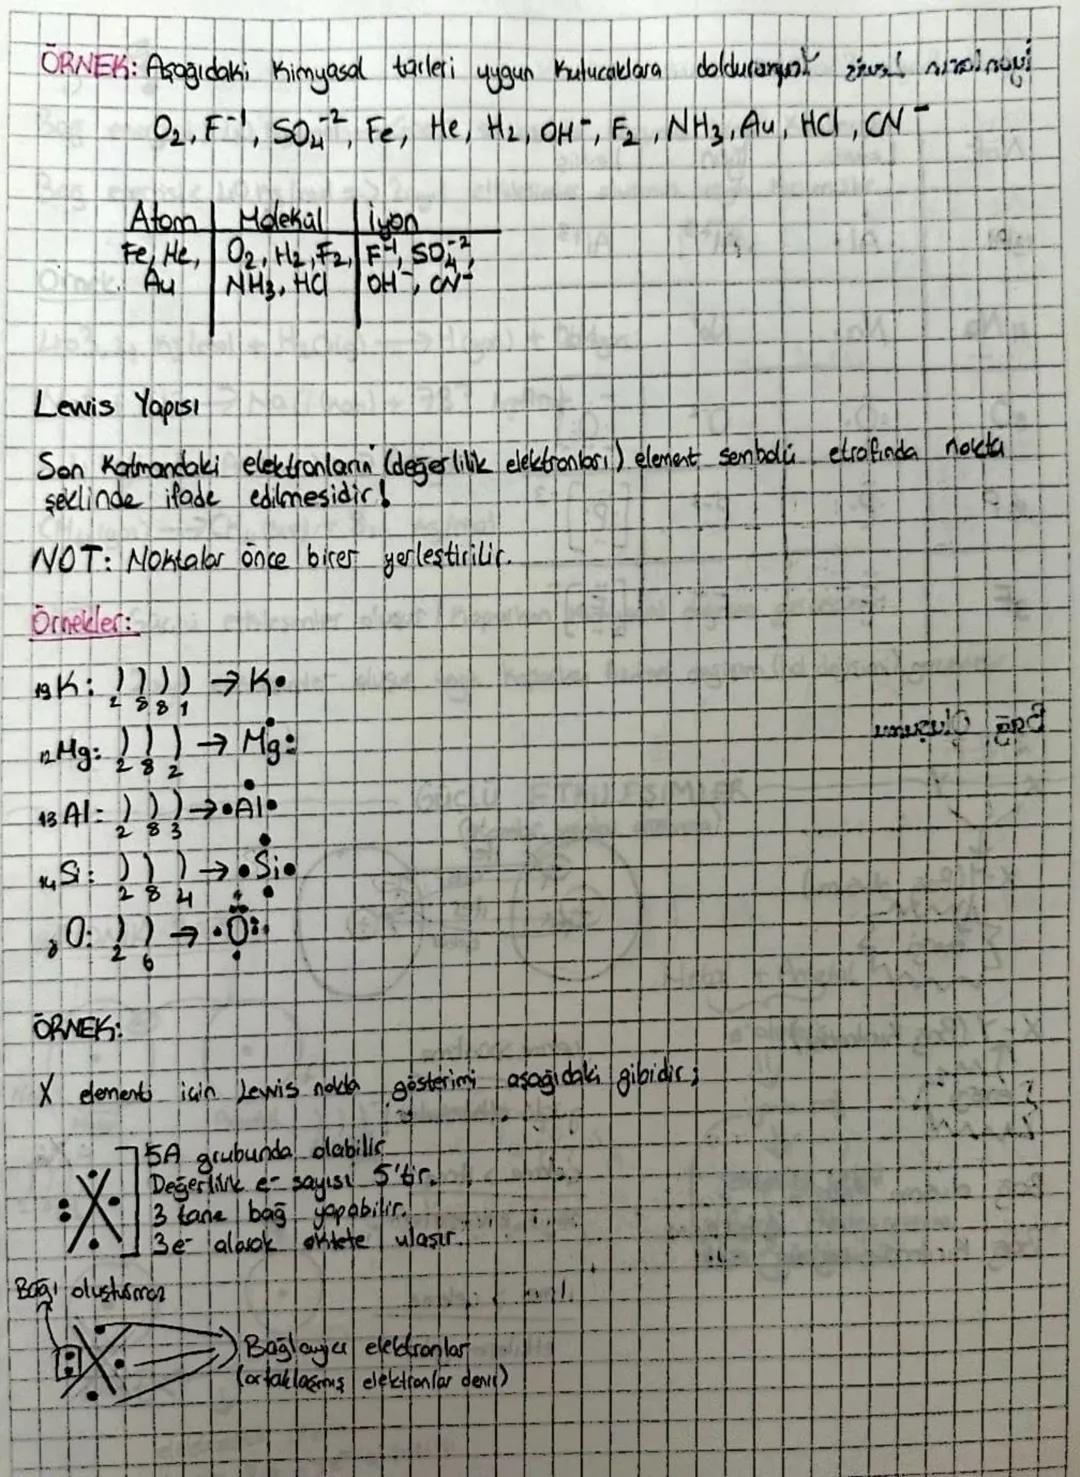 ÖRNEK: Aşağıdaki kimyasal türleri uygun kutucuklara doldurunuz!
O₂, F⁻¹, SO₄⁻², Fe, He, H₂, OH⁻, F₂, NH₃, Au, HCl, CN⁻
Atom | Molekül | İyon
Fe, He, | O₂, H₂, F₂, | F⁻¹, SO₄⁻²,
Au | NH₃, HCl | OH⁻, CN⁻
Lewis Yapısı
Son Katmandaki elektronların (değerlilik elektronları) element sembolü etrafında nokta
şeklinde ifade edilmesidir!
NOT: Noktalar önce birer yerleştirilir.
Örnekler:
₁₉K: ) ) ) ) → K•
2 8 8 1
₁₂Mg: ) ) ) → Mg:
2 8 2
₁₃Al: ) ) ) → •Al•
2 8 3
₁₄Si: ) ) ) → •Si•
2 8 4
₈O: ) ) → •O:
2 6
ÖRNEK:
X elementi için Lewis nokta gösterimi aşağıdaki gibidir;
5A grubunda olabilir
Değerlilik e- sayısı 5'tir.
:X• 3 tane bağ yapabilir.
3e- alarak oktete ulaşır.
Bağı oluşturmaz
:X• Bağlayıcı elektronlar
(ortaklaşmış elektronlar denir)